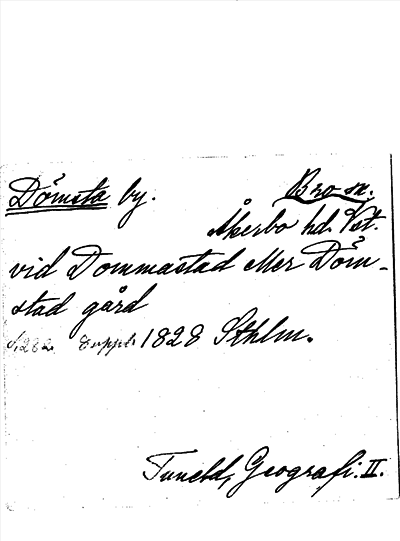 Dömsta by. Bro sn.
Åkerbo hd. Vst.
vid Dommastad eller Döm-
stad gård
s. 282. Suppl. 1828 Sthlm.
Tuneld, Geografi. II.